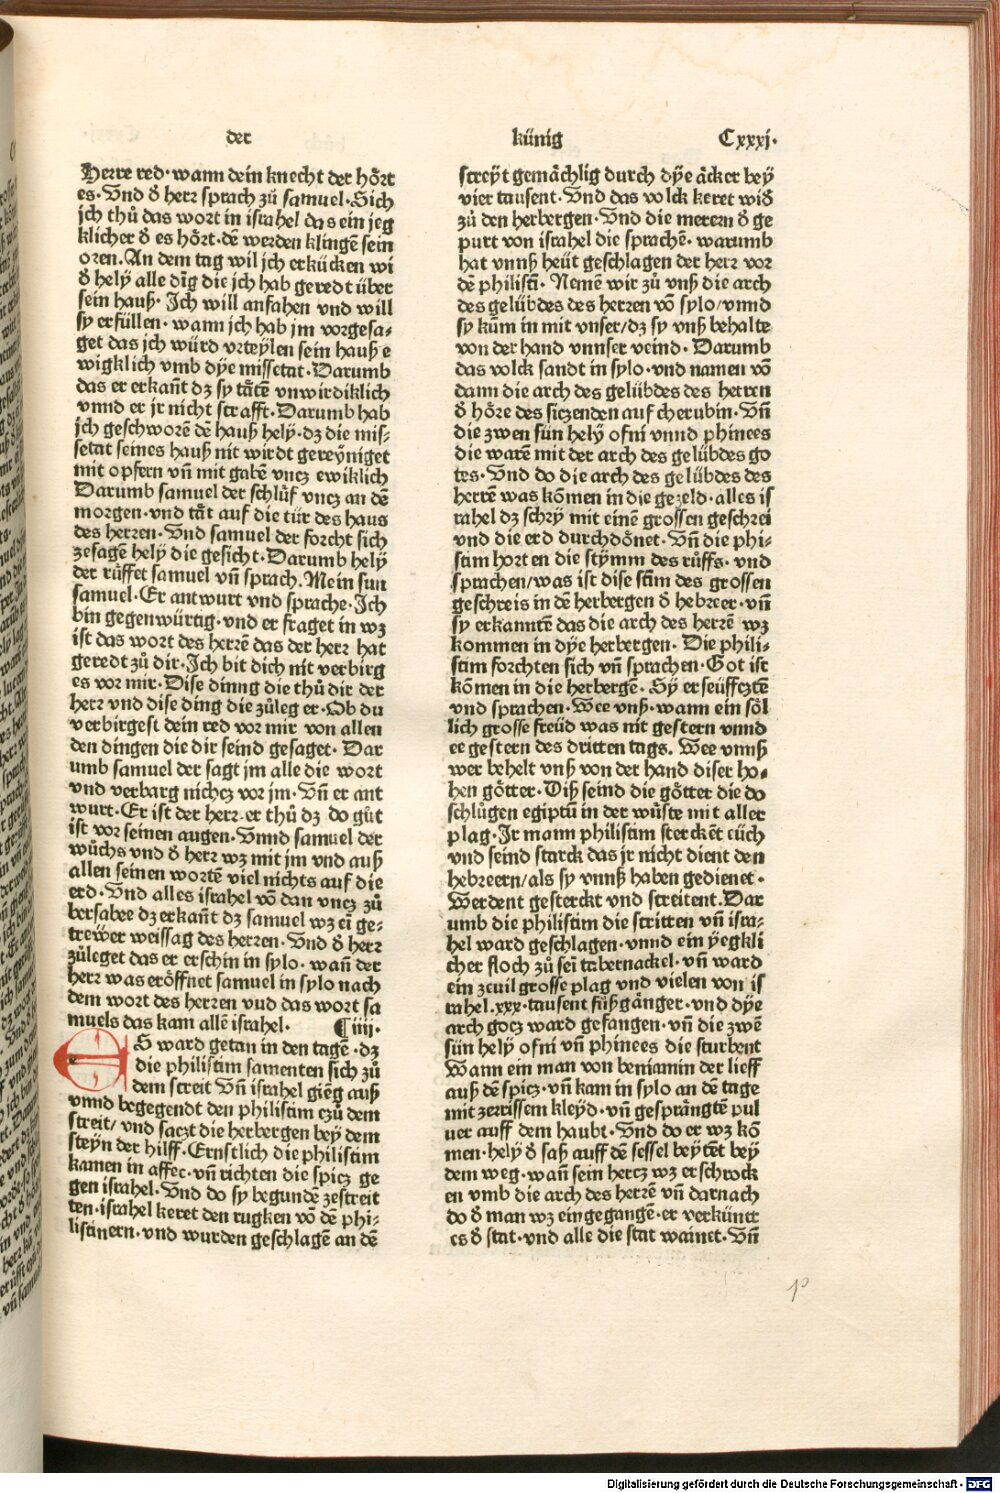 der künig Cxxxj·
Herre red·wann dein knecht der hört
es·Vnd d̕ herr sprach zů samuel·Sich
jch thů das wort in israhel das ein jeg
klicher d̕ es hört·dē werden klingē sein
oren.An dem tag wil jch erkücken wi
d̕ hely alle dīg die jch hab geredt über
sein hauß· Ich will anfahen vnd will
sy erfüllen·wann jch hab jm vorgesa⸗
get das jch würd vrteylen sein hauß e
wigklich vmb dÿe missetat·Darumb
das er erkañt dz sy tätē vnwirdiklich
vnnd er jr nicht strafft·Darumb hab
jch geschworē dē hauß hely·dz die mis⸗
setat seines hauß nit wirdt gereyniget
mit opfern vñ mit gabē vncz ewiklich
Darumb samuel der schlůf vncz an dē
morgen·vnd tät auf die tür des haus
des herren·Vnd samuel der forcht sich
zesagē helÿ die gesicht·Darumb helÿ
der růffet samuel vñ sprach.Mein sun
samuel·Er antwurt vnd sprache·Ich
bin gegenwürtig·vnd er fraget in wz
ist das wort des herrē das der herr hat
geredt zů dir·Ich bit dich nit verbirg
es vor mir·Dise dinng die thů dir der
herr vnd dise ding die zůleg er·Ob du
verbirgest dein red vor mir von allen
den dingen die dir seind gesaget· Dar
umb samuel der sagt jm alle die wort
vnd verbarg nichcz vor jm·Vñ er ant
wurt·Er ist der herr·er thů dz do gůt
ist vor seinen augen·Vnnd samuel der
wůchs vnd d̕ herr wz mit jm vnd auß
allen seinen wortē viel nichts auf die
erd·Vnd alles israhel vō dan vncz zů
bersabee dz erkañt dz samuel wz eī ge⸗
trewer weissag des herren·Vnd d̕ herr
zůleget das er erschin in sylo·wañ der
herr was eröffnet samuel in sylo nach
dem wort des herren vud das wort sa
muels das kam allē israhel· ¶iiij·
ES ward getan in den tagē·dz
die philistim samenten sich zů
dem streit Vñ israhel giēg auß
vnnd begegendt den philistim czů dem
streit/vnd saczt die herbergen beÿ dem
steyn der hilff·Ernstlich die philistim
kamen in affec·vñ richten die spicz ge
gen israhel·Vnd do sy begundē zestreit
ten·israhel keret den rugken vō dē phi⸗
listinern·vnd wurden geschlagē an dē
streÿt gemächlig durch dÿe äcker beÿ
vier tausent·Vnd das volck keret wid̕
zů den herbergen·Vnd die merern d̕ ge
purt von israhel die sprachē·warumb
hat vnnß heüt geschlagen der herr vor
dē philistī·Nemē wir zů vnß die arch
des gelübdes des herren vō sylo/vnnd
sy kūm in mit vnser/dz sy vnß behalte
von der hand vnnser veind·Darumb
das volck sandt in sylo·vnd namen vō
dann die arch des gelübdes des herren
d̕ höre des siczenden auf cherubin·Vñ
die zwen sün helÿ ofni vnnd phinees
die warē mit der arch des gelübdes go
tes·Vnd do die arch des gelübdes des
herrē was kōmen in die gezeld·alles is
rahel dz schrÿ mit einē grossen geschrei
vnd die erd durchdönet·Vñ die phi⸗
stim horten die stÿmm des růffs·vnd
sprachen/was ist dise stīm des grossen
geschreis in dē herbergen d̕ hebreer·vñ
sy erkanntē das die arch des herrē wz
kommen in dÿe herbergen·Die phili⸗
stim forchten sich vñ sprachen·Got ist
kōmen in die herbergē·Sÿ erseüffcztē
vnd sprachen·Wee vnß·wann ein söl
lich grosse freüd was nit gestern vnnd
ee gestern des dritten tags. Wee vnnß
wer behelt vnß von der hand diser ho⸗
hen götter·Diß seind die götter die do
schlůgen egiptū in der wůste mit aller
plag·Ir mann philistim sterckēt eüch
vnd seind starck das jr nicht dient den
hebreern/als sy vnnß haben gedienet·
Werdent gesterckt vnd streitent.Dar
umb die philistim die stritten vñ isra⸗
hel ward geschlagen·vnnd ein ÿegkli
cher floch zů seī tabernackel·vñ ward
ein zeuil grosse plag vnd vielen von is
rahel.xxx·tausent fůßgänger·vnd dÿe
arch gocz ward gefangen·vñ die zwē
sün helÿ ofni vñ phinees die sturbent
Wann ein man von beniamin der lieff
auß dē spicz·vñ kam in sylo an dē tage
mit zerrissem kleÿd·vñ gesprängtē pul
uer auff dem haubt·Vnd do er wz kō
men·helÿ d̕ saß auff dē sessel beÿ tēt beÿ
dem weg·wañ sein hercz wz erschrock
en vmb die arch des herrē vñ darnach
do d̕ man wz eingegangē·er verkünt
es d̕ stat·vnd alle die stat wainet·Vñ
p
Digitalisierung gefördert durch die Deutsche Forschungsgemeinschaft - DFG